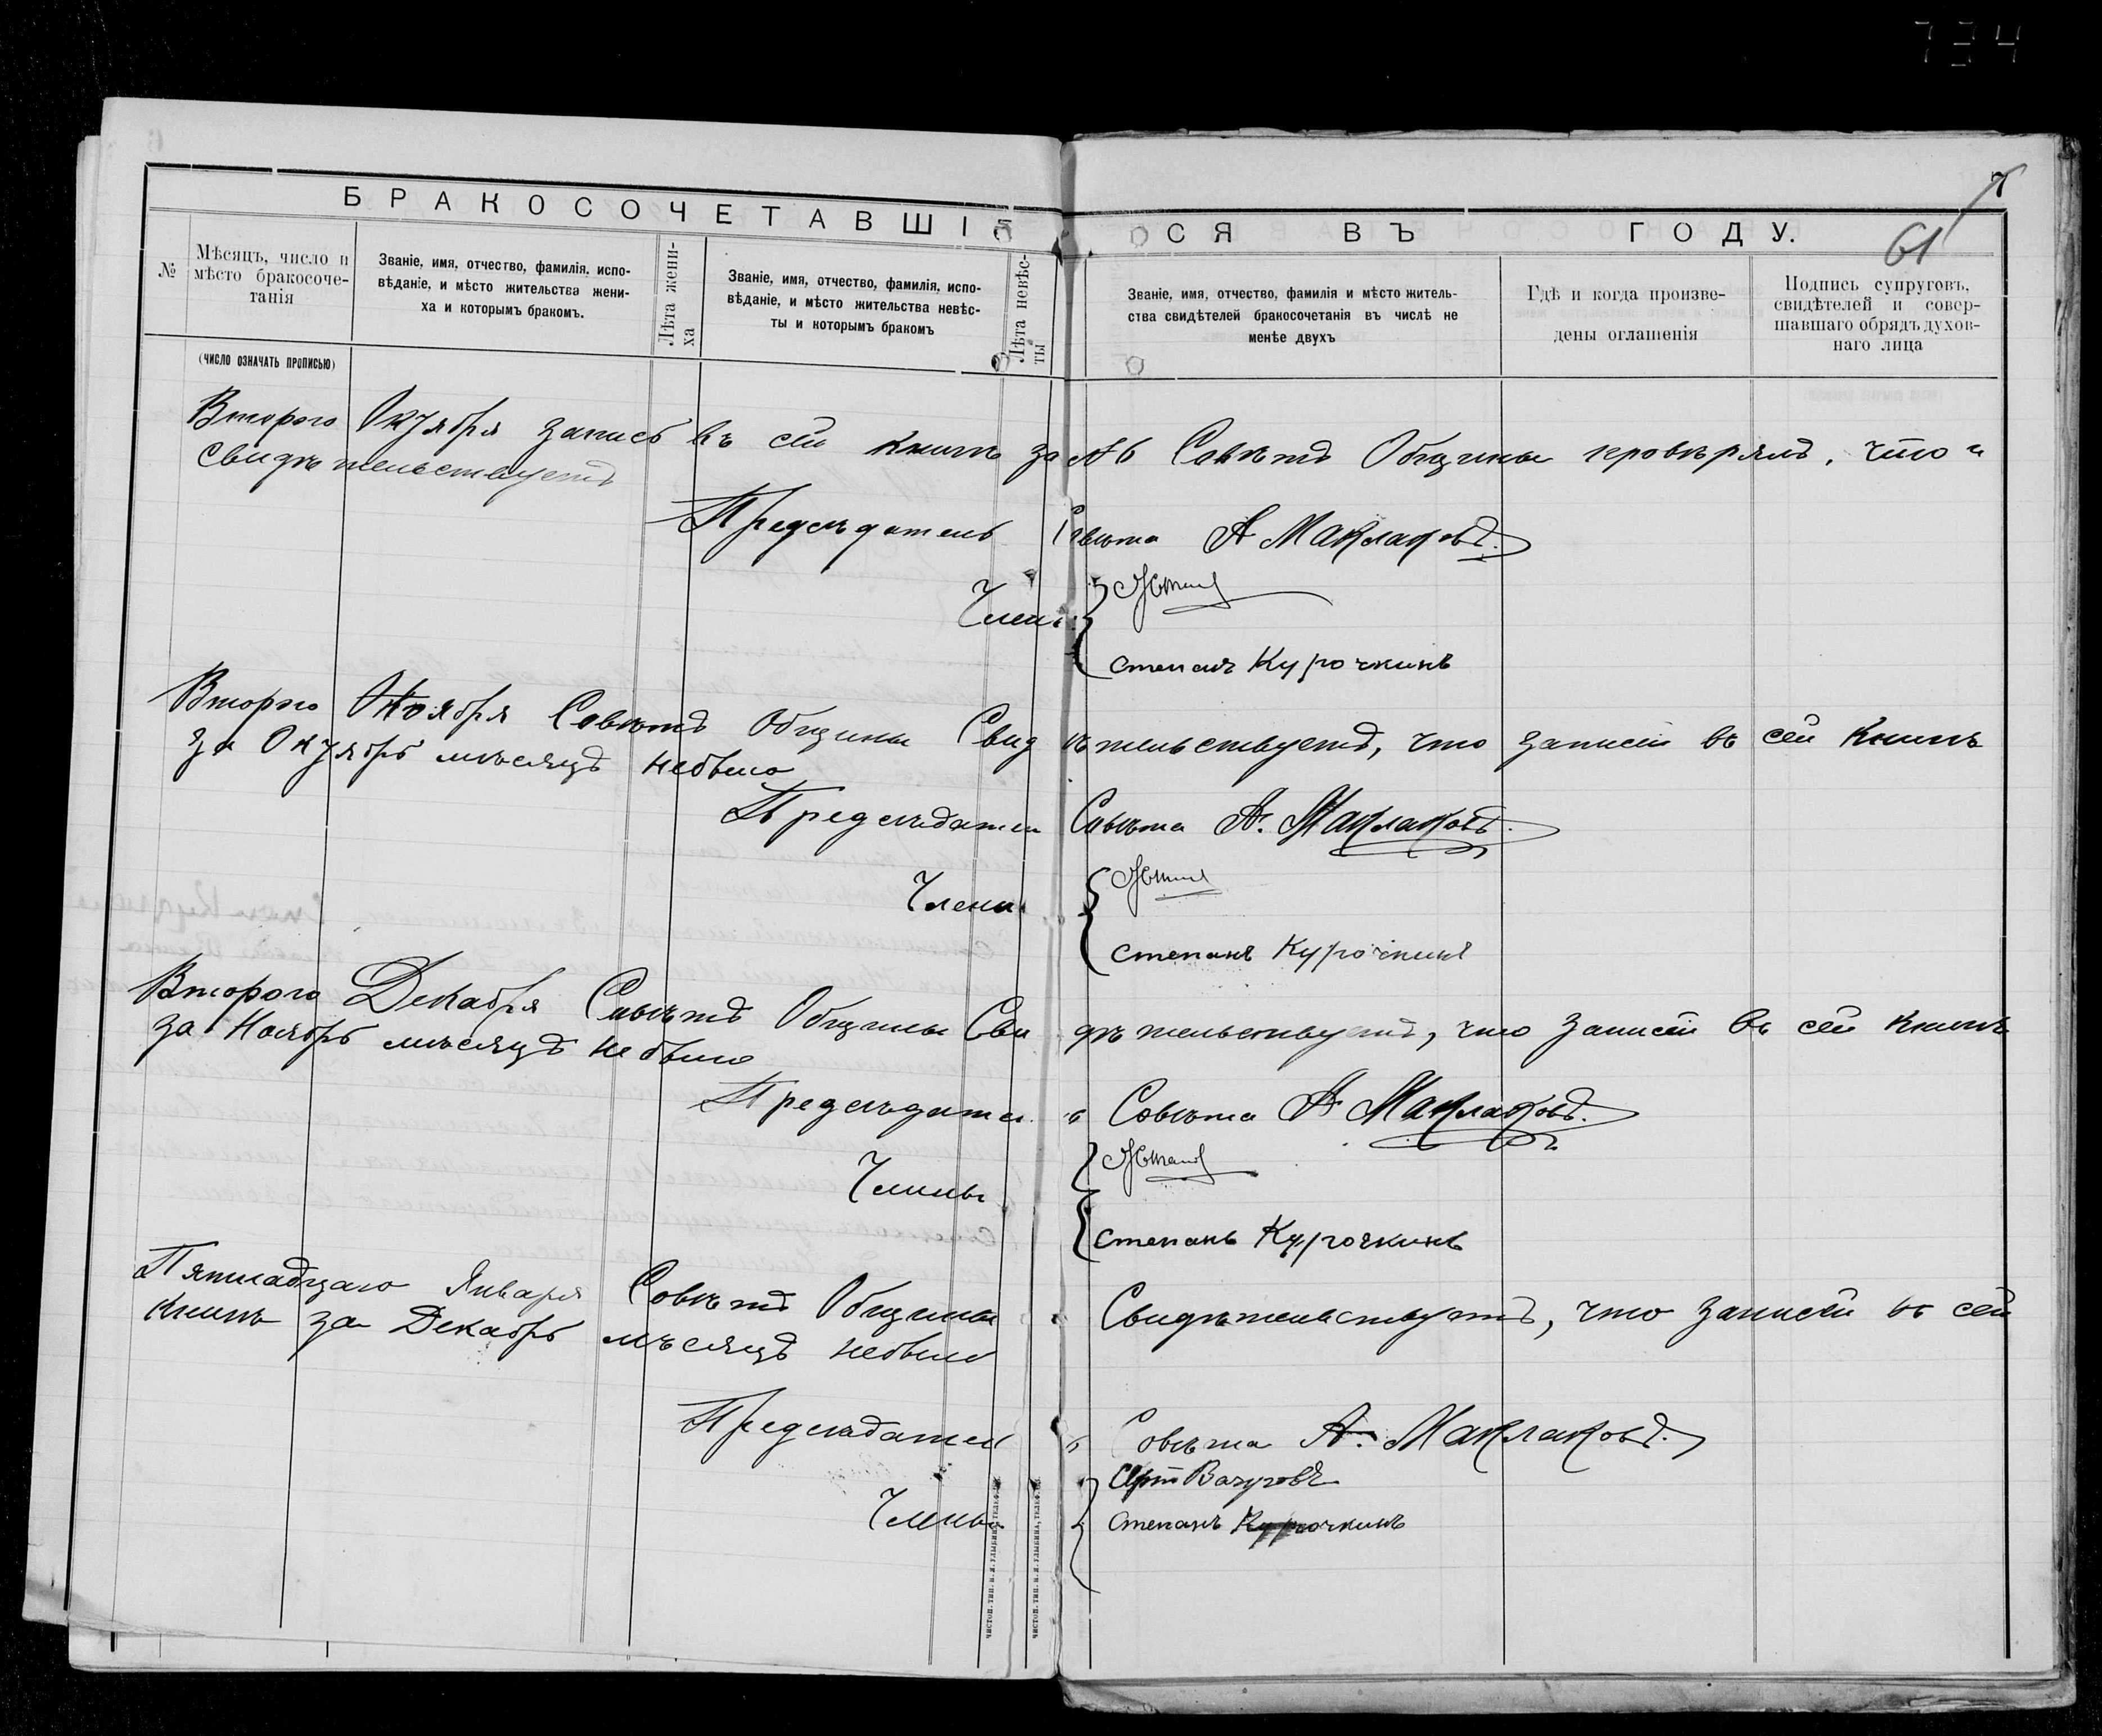 734
7
61
БРАКОСОЧЕТАВШІЕСЯ ВЪ ГОДУ.
№
Мѣсяцъ, число и
мѣсто бракосоче-
танія
(ЧИСЛО ОЗНАЧАТЬ ПРОПИСЬЮ)
Званіе, имя, отчество, фамилія, испо-
вѣданіе, и мѣсто жительства жени-
ха и которымъ бракомъ.
Лѣта жени-
ха
Званіе, имя, отчество, фамилія, испо-
вѣданіе, и мѣсто жительства невѣс-
ты и которымъ бракомъ
Лѣта невѣс-
ты
Званіе, имя, отчество, фамилія и мѣсто житель-
ства свидѣтелей бракосочетанія въ числѣ не
менѣе двухъ
Гдѣ и когда произве-
дены оглашенія
Подпись супруговъ,
свидѣтелей и совер-
шавшаго обрядъ духов-
наго лица
Второго Октября запись въ сей книгѣ за Совѣтъ Общины провѣрялъ, что и
Свидѣтельствуетъ
Предсѣдатель Совѣта А Маклаковъ.
Члены
Степанъ Курочкинъ
Второго Ноября Совѣтъ Общины Свидѣтельствуетъ, что записей въ сей Книгѣ
за Октябрь мѣсяцъ небыло
Предсѣдатель Совѣта А. Маклаковъ.
Члены
Степанъ Курочкинъ
Второго Декабря Совѣтъ Общины Свидѣтельствуетъ, что записей въ сей Книгѣ
за Ноябрь мѣсяцъ небыло
Предсѣдатель Совѣта А Маклаковъ.
Члены
Степанъ Курочкинъ
Пятнадцаго Января Совѣтъ Общины Свидѣтельствуетъ, что записей въ сей
Книгѣ за Декабрь мѣсяцъ небыло
Предсѣдатель Совѣта А. Маклаковъ.
Члены
Степанъ Курочкинъ